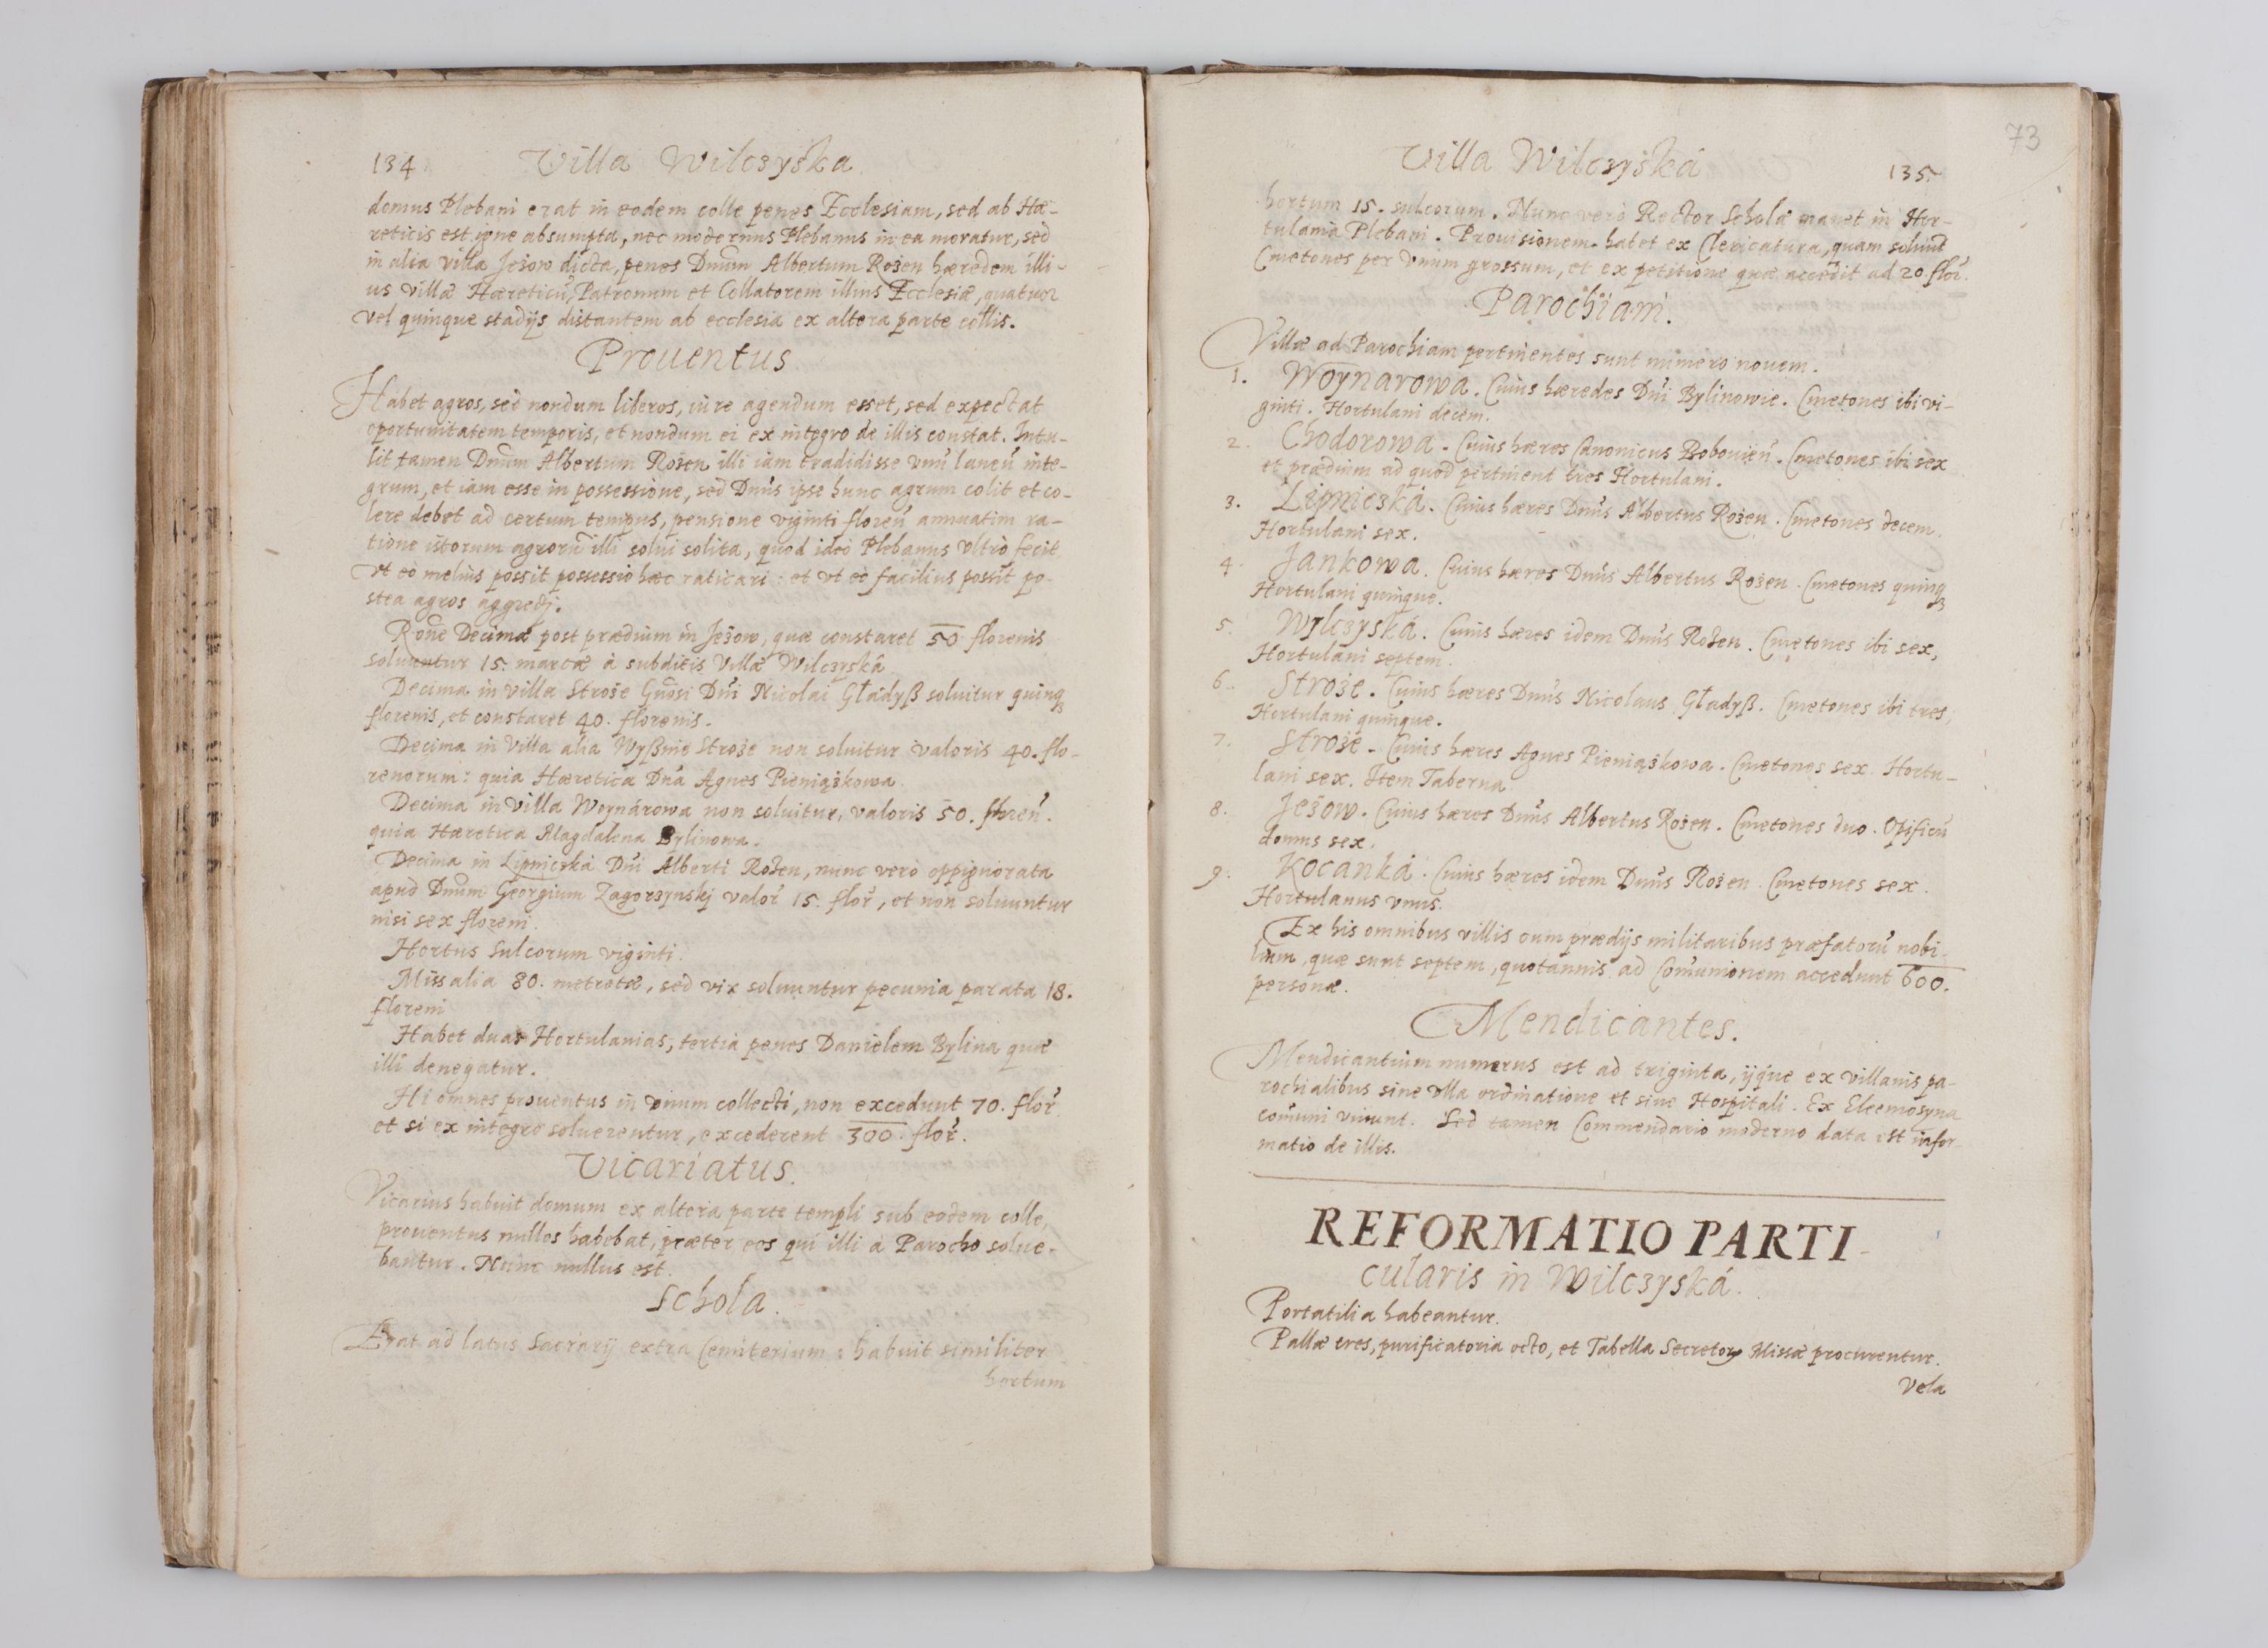 134 Villa Wilczyska
domus Plebani erat in eodem colle penes Ecclesiam, sed ab Hæ-
reticis est igne absumpta, nec modernus Plebanus in ea moratur, sed
in alia villa Jeżow dicta, penes Dnum Albertum Rożen hæredem illi-
us villæ Hæreticũ, Patronum et Collatorem illius Ecclesiæ, quatuor
vel quinque stadijs distantem ab ecclesia ex altera parte collis.
Prouentus
Habet agros, sed nondum liberos, iure agendum esset, sed expectat
oportunitatem temporis, et nondum ei ex integro de illis constat. Intu-
lit tamen Dnum Albertum Rożen illi iam tradidisse vnũ laneũ inte-
grum, et iam esse in possessione, sed Dnus ipse hunc agrum colit et co-
lere debet ad certum tempus, pensione viginti floreñ annuatim ra-
tione istorum agrorũ illi solui solita, quod ideò Plebanus vltrò fecit
vt eò meliùs possit possessio hæc raticari: et vt eò faciliùs possit po-
stea agros aggredj.
Rone Decimæ post prædium in Jeżow, quæ constaret 50 florenis
soluuntur 15. marcæ à subditis Villæ Wilczyská
Decima in villa Stroże Gnosi Dñi Nicolai Gładyß soluitur quinq3
florenis, et constaret 40. florenis.
Decima in Villa alia Wyßnie Stroże non soluitur valoris 40. flo-
renorum: quia Hæretica Dña Agnes Pieniążkowa
Decima in Villa Woynárowa non soluitur, valoris 50. floreñ.
quia Hæretica Magdalena Bylinowa.
Decima in Lipniczká Dñi Alberti Rożen, nunc verò oppignorata
apud Dnum Georgium Zagorzynskj valor̃ 15. flor̃, et non soluuntur
nisi sex floreni.
Hortus Sulcorum viginti.
Missalia 80. metretæ, sed vix soluuntur pecunia parata 18.
floreni
Habet duas Hortulanias, tertia penes Danielem Bylina quæ
illi denegatur.
Hi omnes prouentus in vnum collecti, non excedunt 70. flor̃
et si ex integro soluerentur, excederent 300. flor̃.
Vicariatus.
Vicarius habuit domum ex altera parte templi sub eodem colle,
prouentus nullos habebat, præter eos qui illi à Parocho solue-
bantur. Nunc nullus est.
Schola.
Erat ad latus Sacrarij extra Cemiterium: habuit similiter
hortum
73
Villa Wilczyská 135.
hortum 15. sulcorum. Nunc verò Rector Scholæ manet in Hor-
tulania Plebani. Prouisionem habet ex Clericatura, quam soluũt
Cmetones per vnum grossum, et ex petitione quæ accedit ad 20 flor̃.
Parochiani.
Villæ ad Parochiam pertinentes sunt numero nouem.
1. Woynarowa. Cuius hæredes Dñi Bylinowie. Cmetones ibi vi-
ginti. Hortulani decem.
2. Chodorowa. Cuius hæres Canonicus Bobouieñ. Cmetones ibi sex
et prædium ad quod pertinent tres Hortulani.
3. Lipniczká. Cuius hæres Dnus Albertus Rożen. Cmetones decem.
Hortulani sex.
4. Jankowa. Cuius hæres Dnus Albertus Rożen. Cmetones quinq3
Hortulani quinque.
5. Wylczyská. Cuius hæres idem Dnus Rożen. Cmetones ibi sex,
Hortulani septem.
6. Stroże. Cuius hæres Dnus Nicolaus Gładyß. Cmetones ibi tres,
Hortulani quinque.
7. Stroże. Cuius hæres Agnes Pieniążkowa. Cmetones sex. Hortu-
lani sex. Item Taberna
8. Jeżow. Cuius hæres Dnus Albertus Rożen. Cmetones duo. Opificũ
domus sex.
9. Kocanká. Cuius hæres idem Dnus Rożen. Cmetones sex.
Hortulanus vnus.
Ex his omnibus villis cum prædijs militaribus præfatorũ nobi-
lium, quæ sunt septem, quotannis ad Com̃unionem accedunt 600.
personæ.
Mendicantes.
Mendicantium numerus est ad triginta, ijque ex villanis pa-
rochialibus sine vlla ordinatione et sine Hospitali. Ex Eleemosyna
com̃uni viuunt. Sed tamen Commendario moderno data est infor-
matio de illis.
REFORMATIO PARTI-
cularis in Wilczyská.
Portatilia habeantur.
Pallæ tres, purificatoria octo, et Tabella Secretorꝫ Missæ procurentur.
Vela